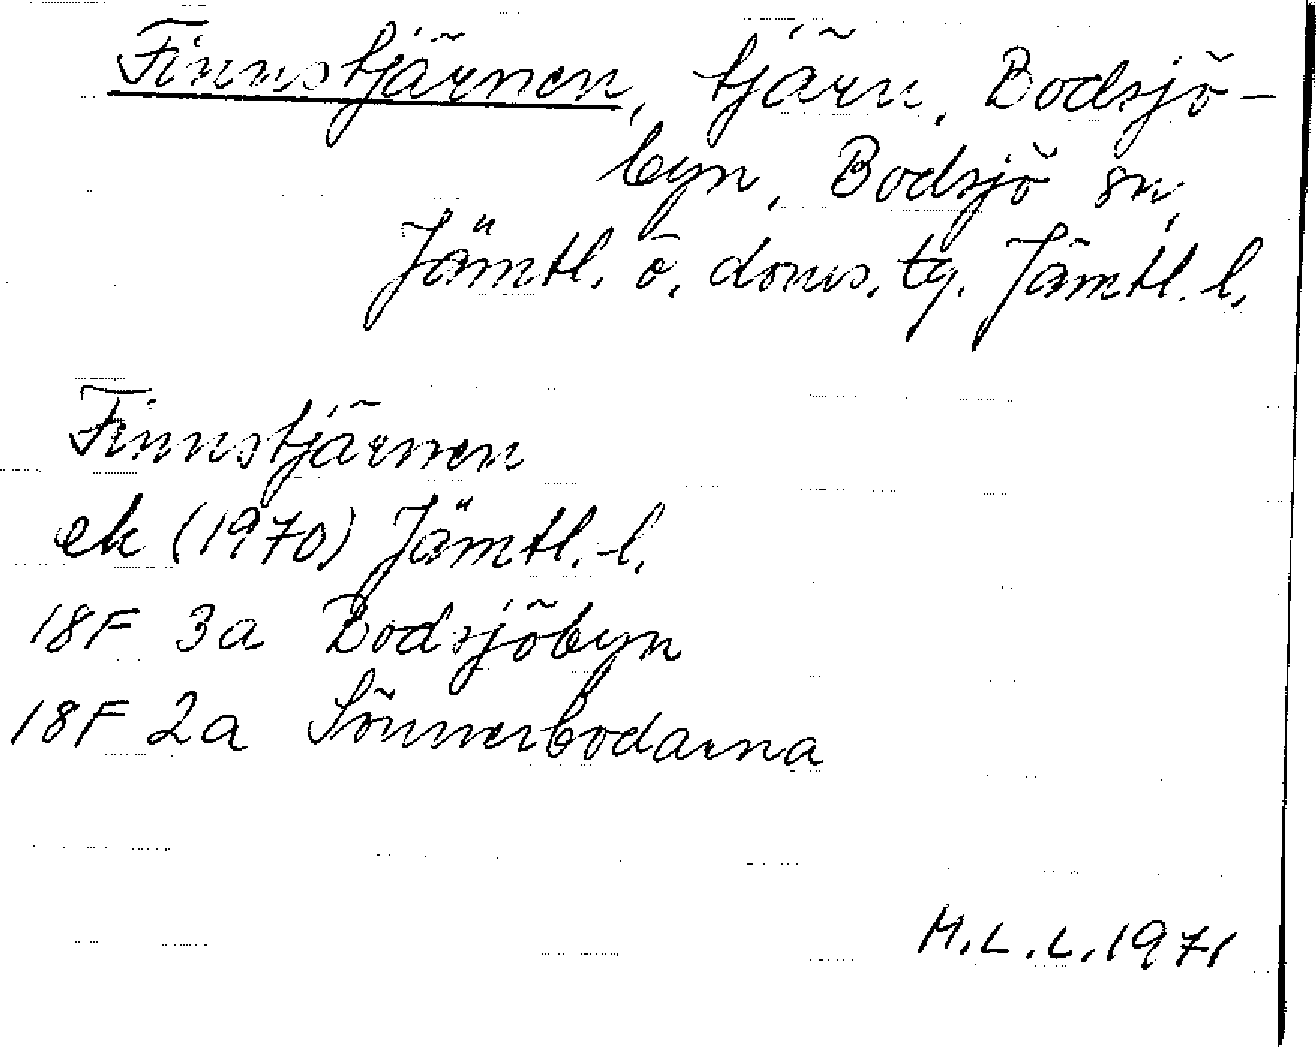 Finnstjärnen, tjärn, Bodsjö-
byn, Bodsjö sn,
Jämtl. ö. doms. tg. Jämtl. l.
Finnstjärnen
ek (1970) Jämtl. l.
18F 3a Bodsjöbyn
18F 2a Sönnerbodarna
M.L.L. 1971